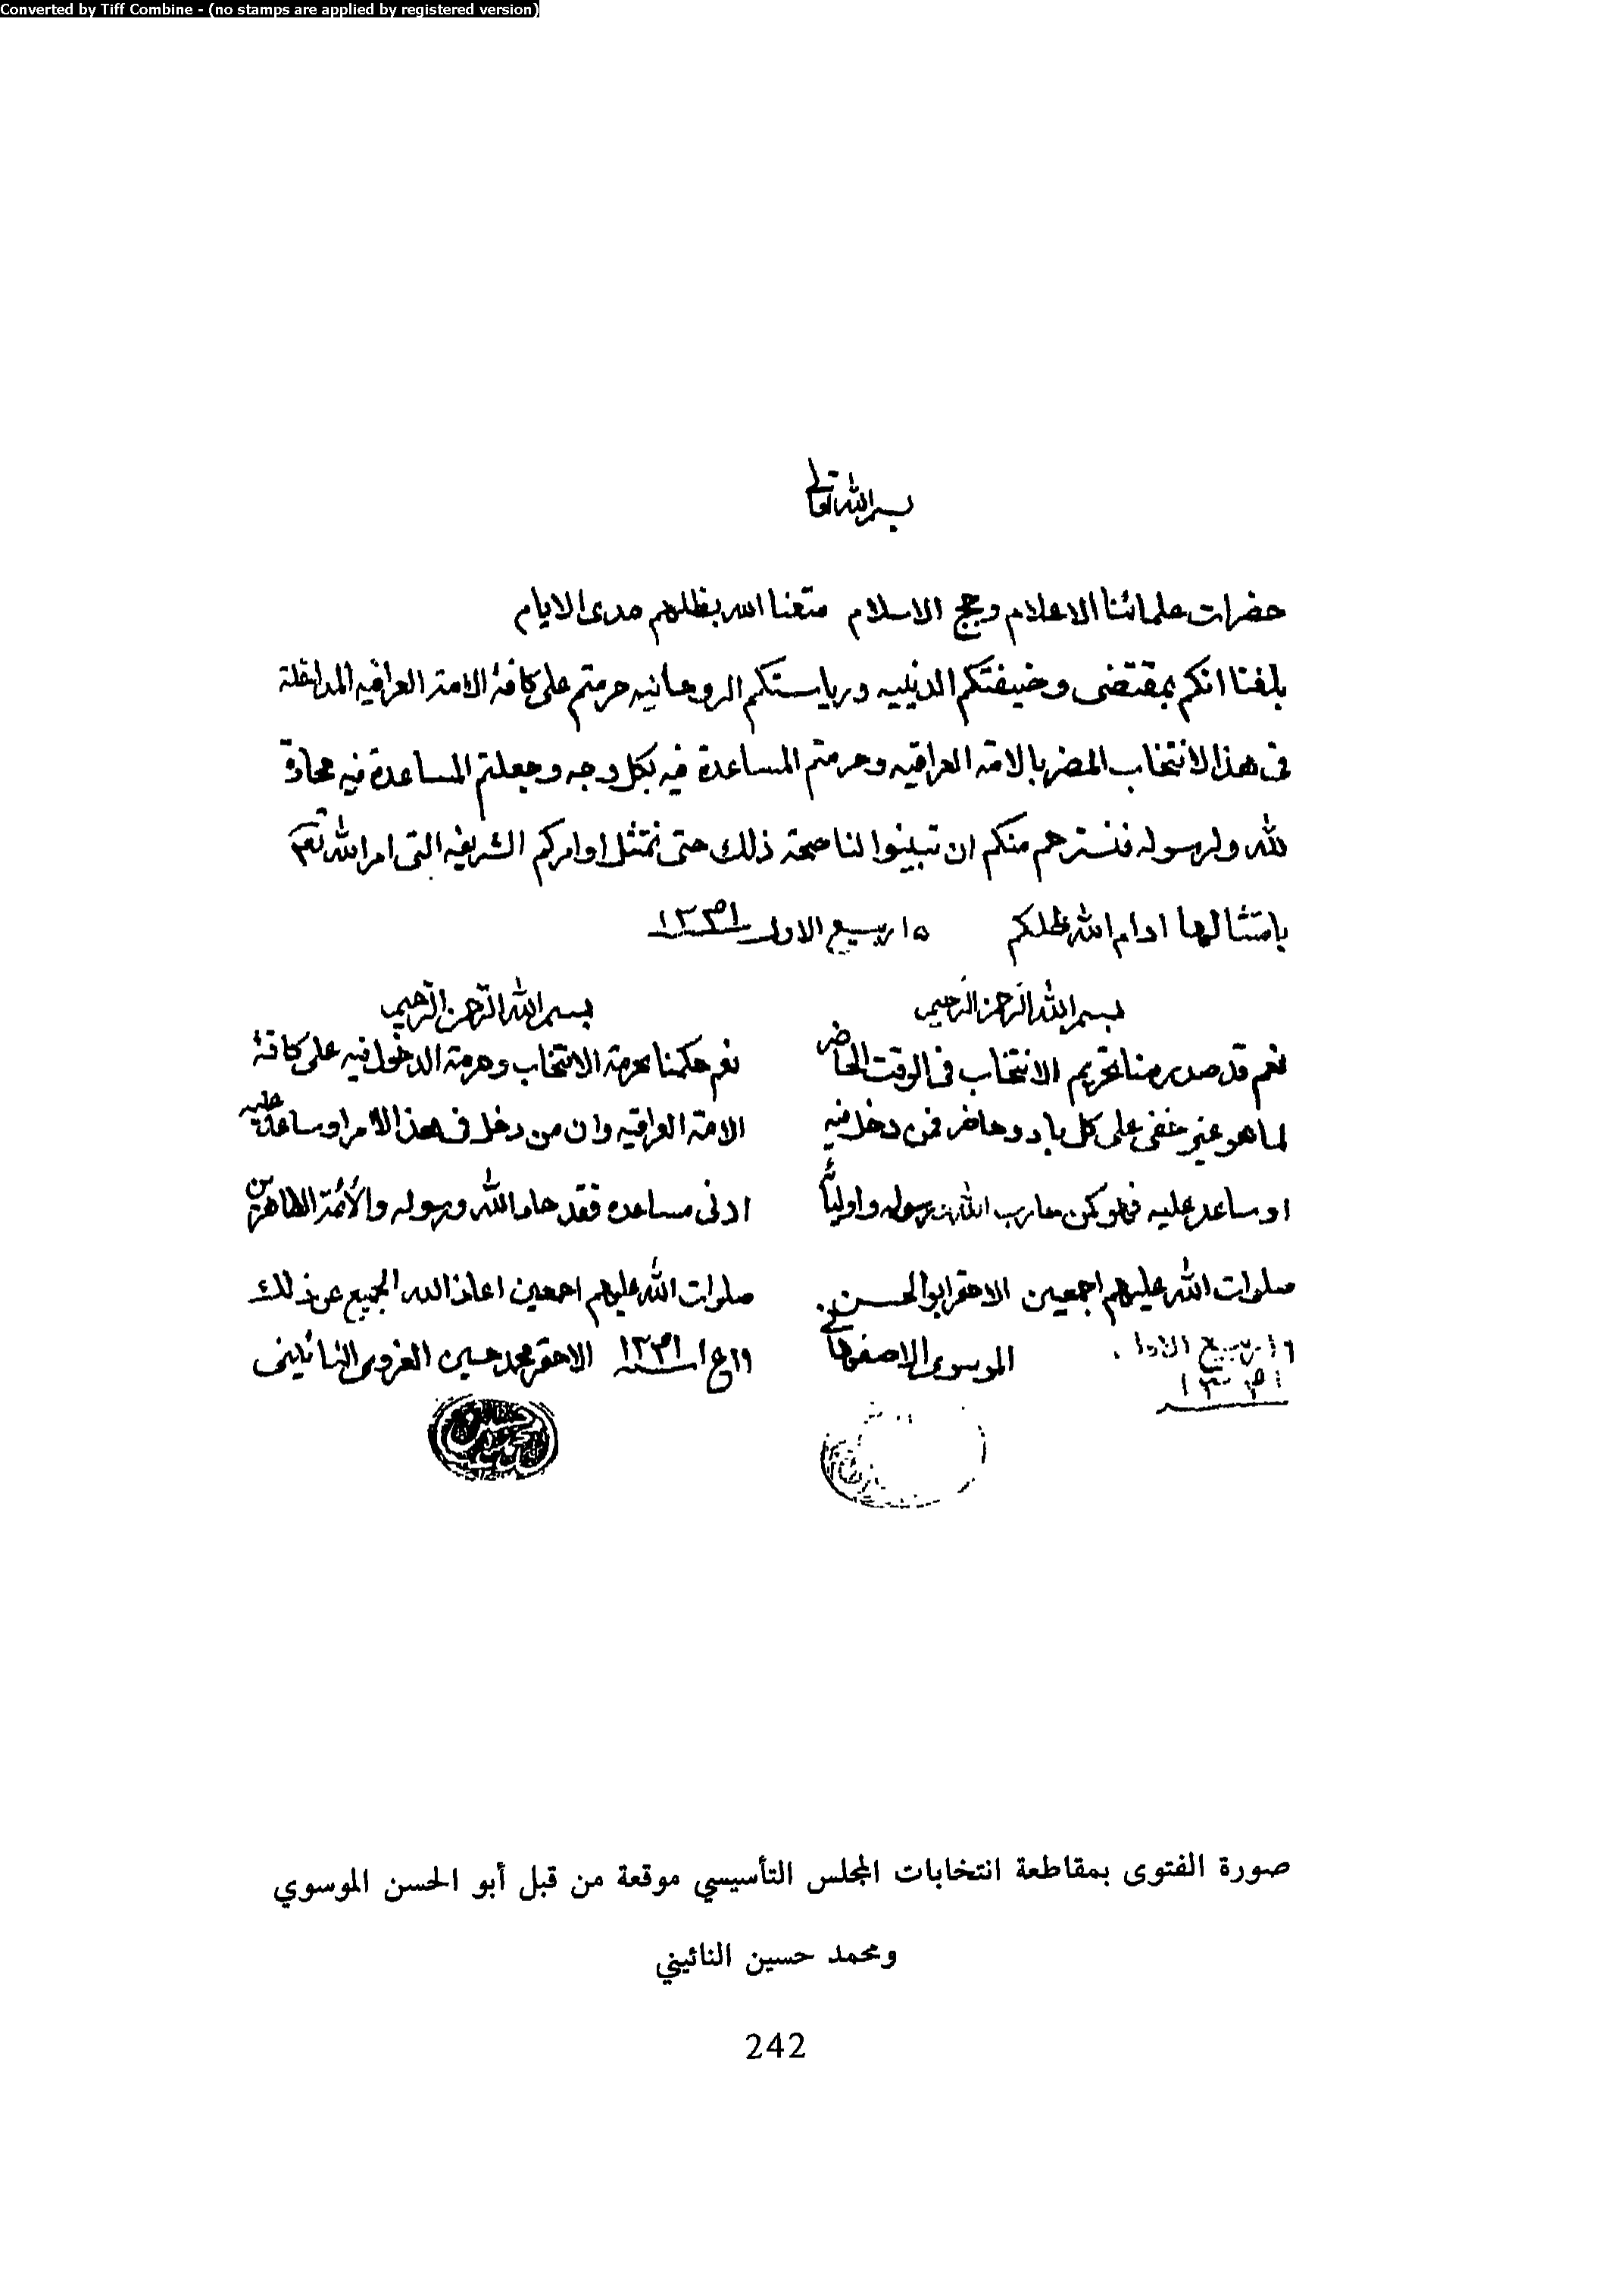 Converted by Tiff Combine - (no stamps are applied by registered version)
بسم الله تعالى
حضرات علمائنا الاعلام وحجج الاسلام متعنا الله بظلهم مدى الايام
بلغنا انكم بمقتضى وضيفتكم الدينيه ورياستكم الروحانيه حرمتم على كافة الامة العراقيه المداخلة
فى هذا الانتخاب المضر بالامة العراقيه وحرمتم المساعدة فيه بكل وجه وجعلتم المساعدة فيه محادة
لله ولرسوله فنسترحم منكم ان تبينوا لنا صحة ذلك حتى نمتثل اوامركم الشريفه التى امر الله تعالى
بامتثالها ادام الله ظلكم ١٥ ربيع الاول ١٣٤١
بسم الله الرحمن الرحيم
نعم قد صدر منا تحريم الانتخاب فى الوقت الحاضر
لما هو غير خفى على كل باد وحاضر فمن دخل فيه
او ساعد عليه فهو كمن حارب الله ورسوله واولياء
صلوات الله عليهم اجمعين الاحقر ابو الحسن
الموسوى الاصفهانى
١٦ ربيع الاول
١٣٤١
بسم الله الرحمن الرحيم
نعم حكمنا بحرمة الانتخاب وحرمة الدخول فيه على كافة
الامة العراقيه وان من دخل فى هذا الامر او ساعد عليه
ادنى مساعده فقد حاد الله ورسوله والأئمة الطاهرين
صلوات الله عليهم اجمعين اعاذ الله الجميع عن ذلك
ع ١ ١٣٤١ الاحقر محمد حسين الغروى النائينى
صورة الفتوى بمقاطعة انتخابات المجلس التأسيسي موقعة من قبل أبو الحسن الموسوي
ومحمد حسين النائيني
242